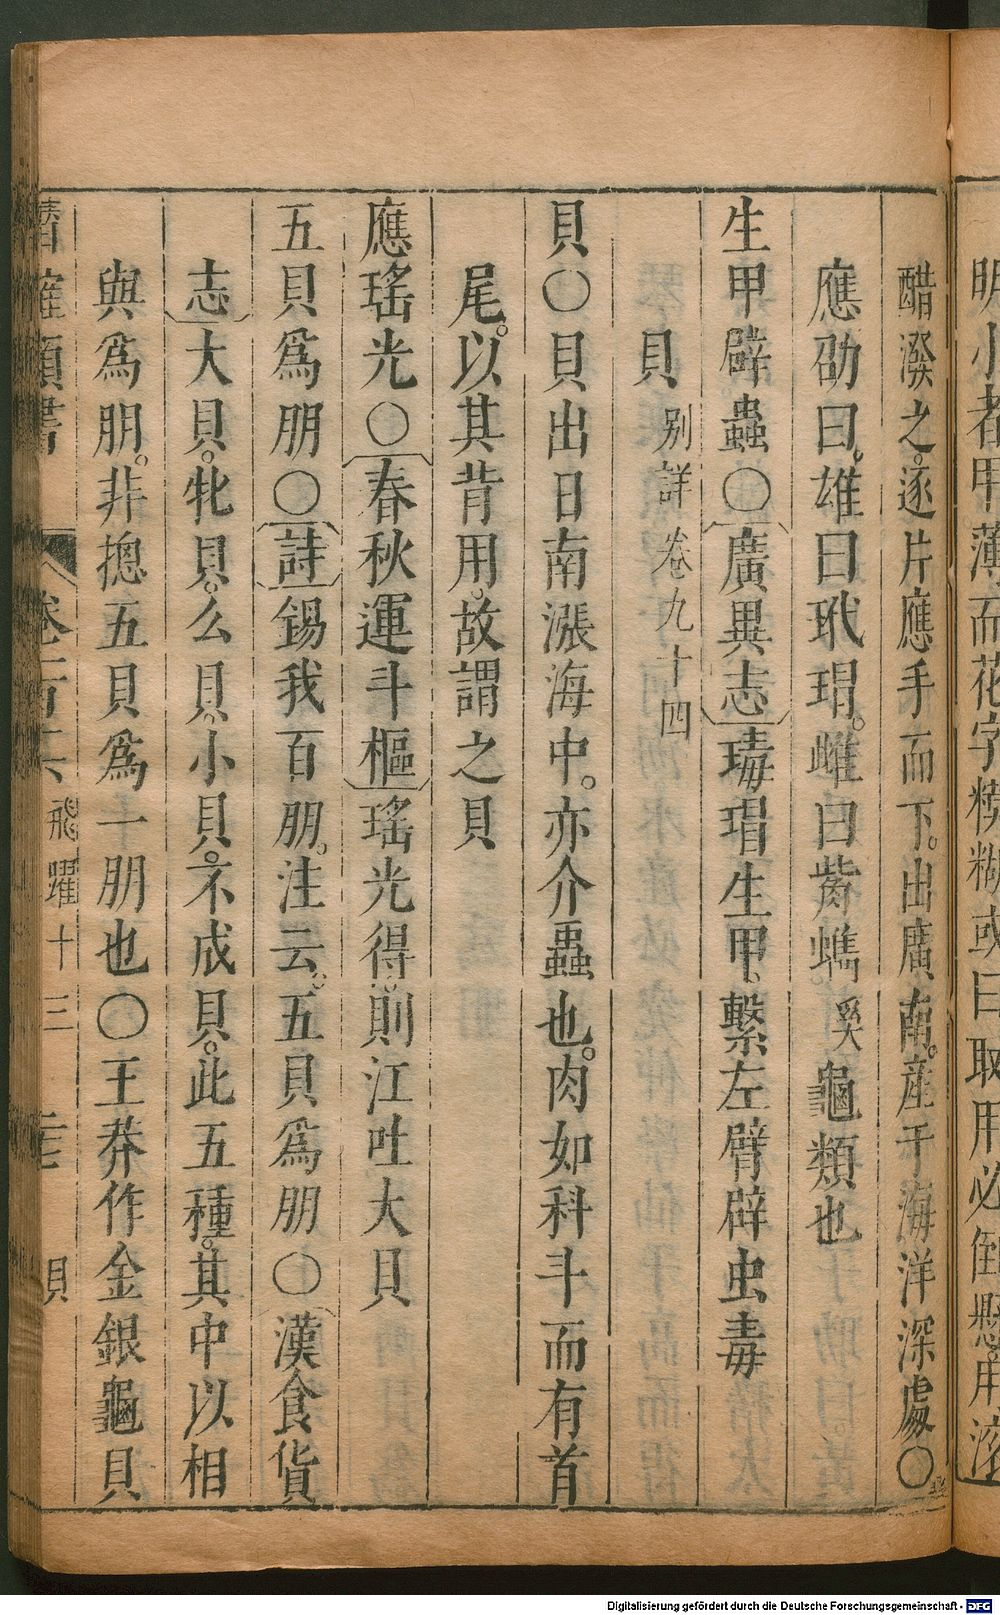 明小者甲薄而花字模糊或曰取用必倒懸用滾
醋潑之。逐片應手而下。出廣南。産于海洋深處〇
應劭曰。雄曰玳瑁。雌曰觜蠵。奚龜類也
生甲辟蟲〇廣異志瑇瑁生甲、繫左臂辟虫毒
貝 别詳卷九十四
貝〇貝出日南漲海中。亦介蟲也。肉如科斗而有首
尾。以其背用。故謂之貝
應瑤光〇春秋運斗樞瑤光得則江吐大貝
五貝爲朋〇詩錫我百朋。注云。五貝爲朋〇漢食貨
志大貝。牝貝。么貝。小貝。不成貝。此五種。其中以相
與爲朋。非摠五貝爲一朋也〇王莽作金銀龜貝
潛確類書 飛躍十三 貝
Digitalisierung gefördert durch die Deutsche Forschungsgemeinschaft - DFG